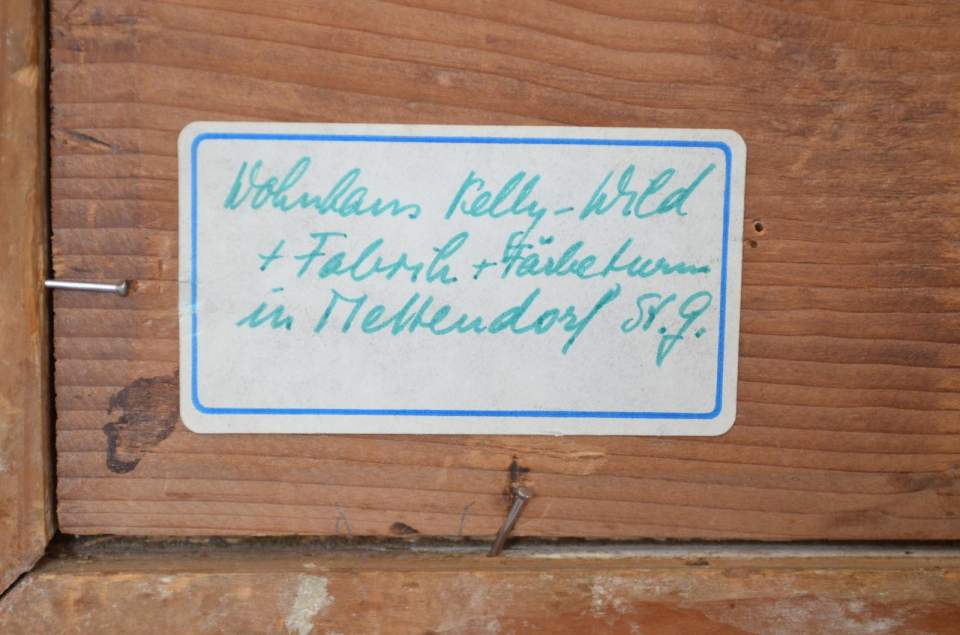 Wohnhaus Kelly-Wild
+ Fabrik + Färbeturm
in Mettendorf St. G.